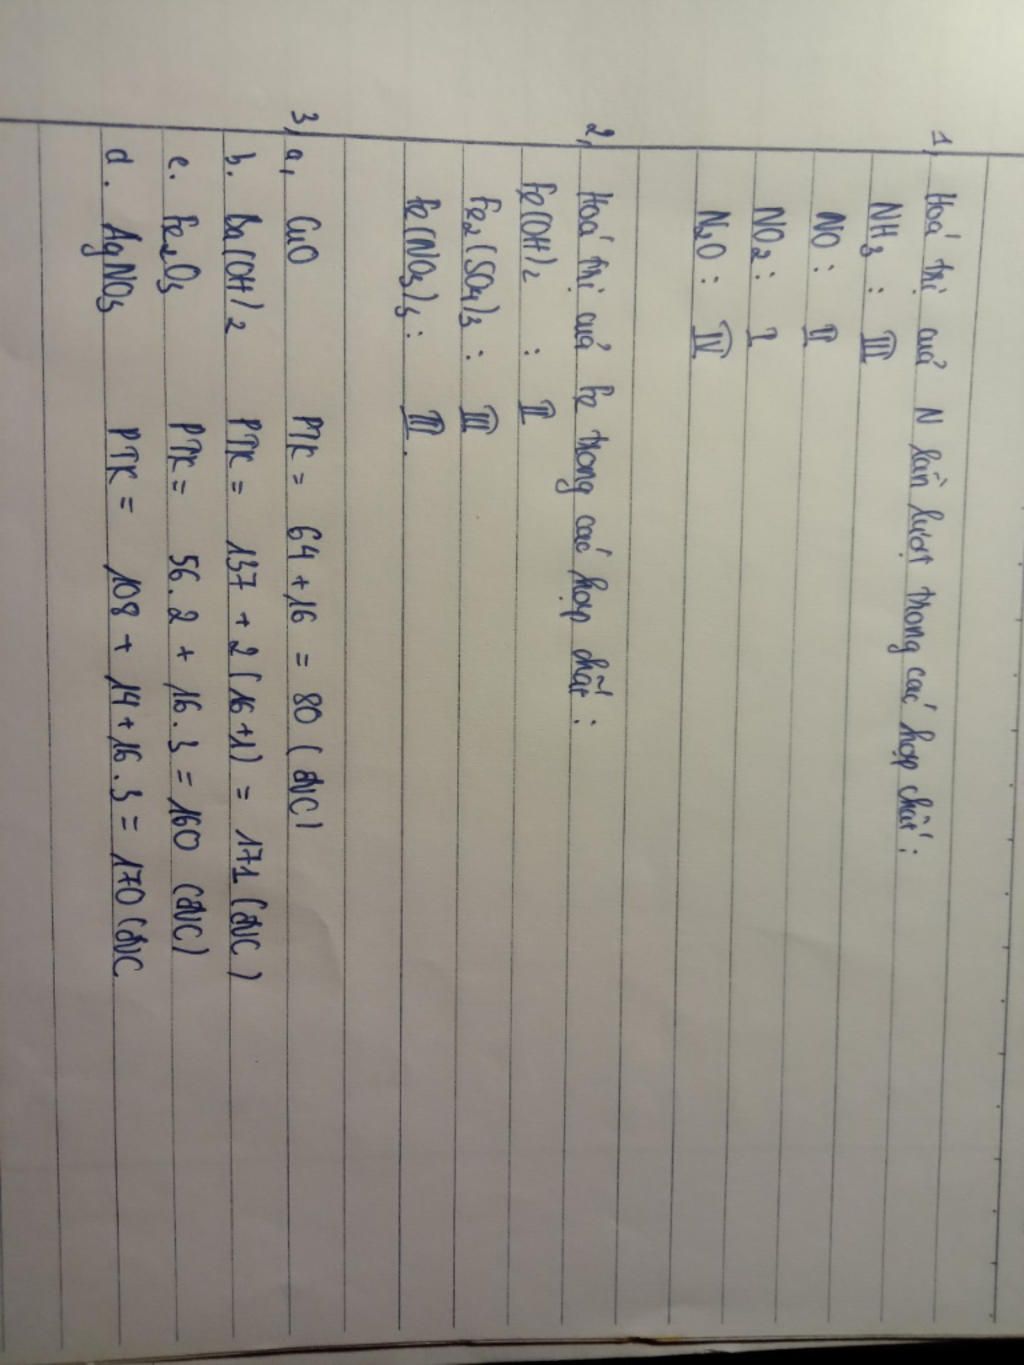 1, Hoá trị của N lần lượt trong các hợp chất:
NH3 : III
NO : II
NO2 : I
N2O : IV
2, Hoá trị của Fe trong các hợp chất :
Fe(OH)2 : II
Fe2(SO4)3 : III
Fe(NO3)3 : III.
3, a, CuO PTK = 64 + 16 = 80 (đvC)
b. Ba(OH)2 PTK = 137 + 2(16+1) = 171 (đvC)
c. Fe2O3 PTK = 56.2 + 16.3 = 160 (đvC)
d. AgNO3 PTK = 108 + 14 + 16.3 = 170 (đvC